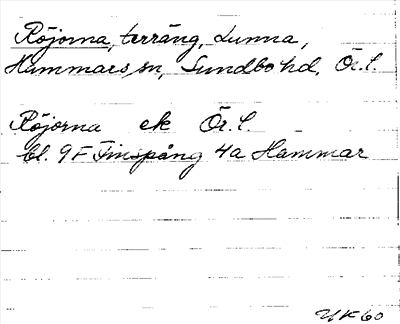 Röjorna, terräng, Lunna,
Hammars sn, Sundbo hd, Ör. l.
Röjorna ek Ör. l.
bl. 9F Finspång 4a Hammar
YK60